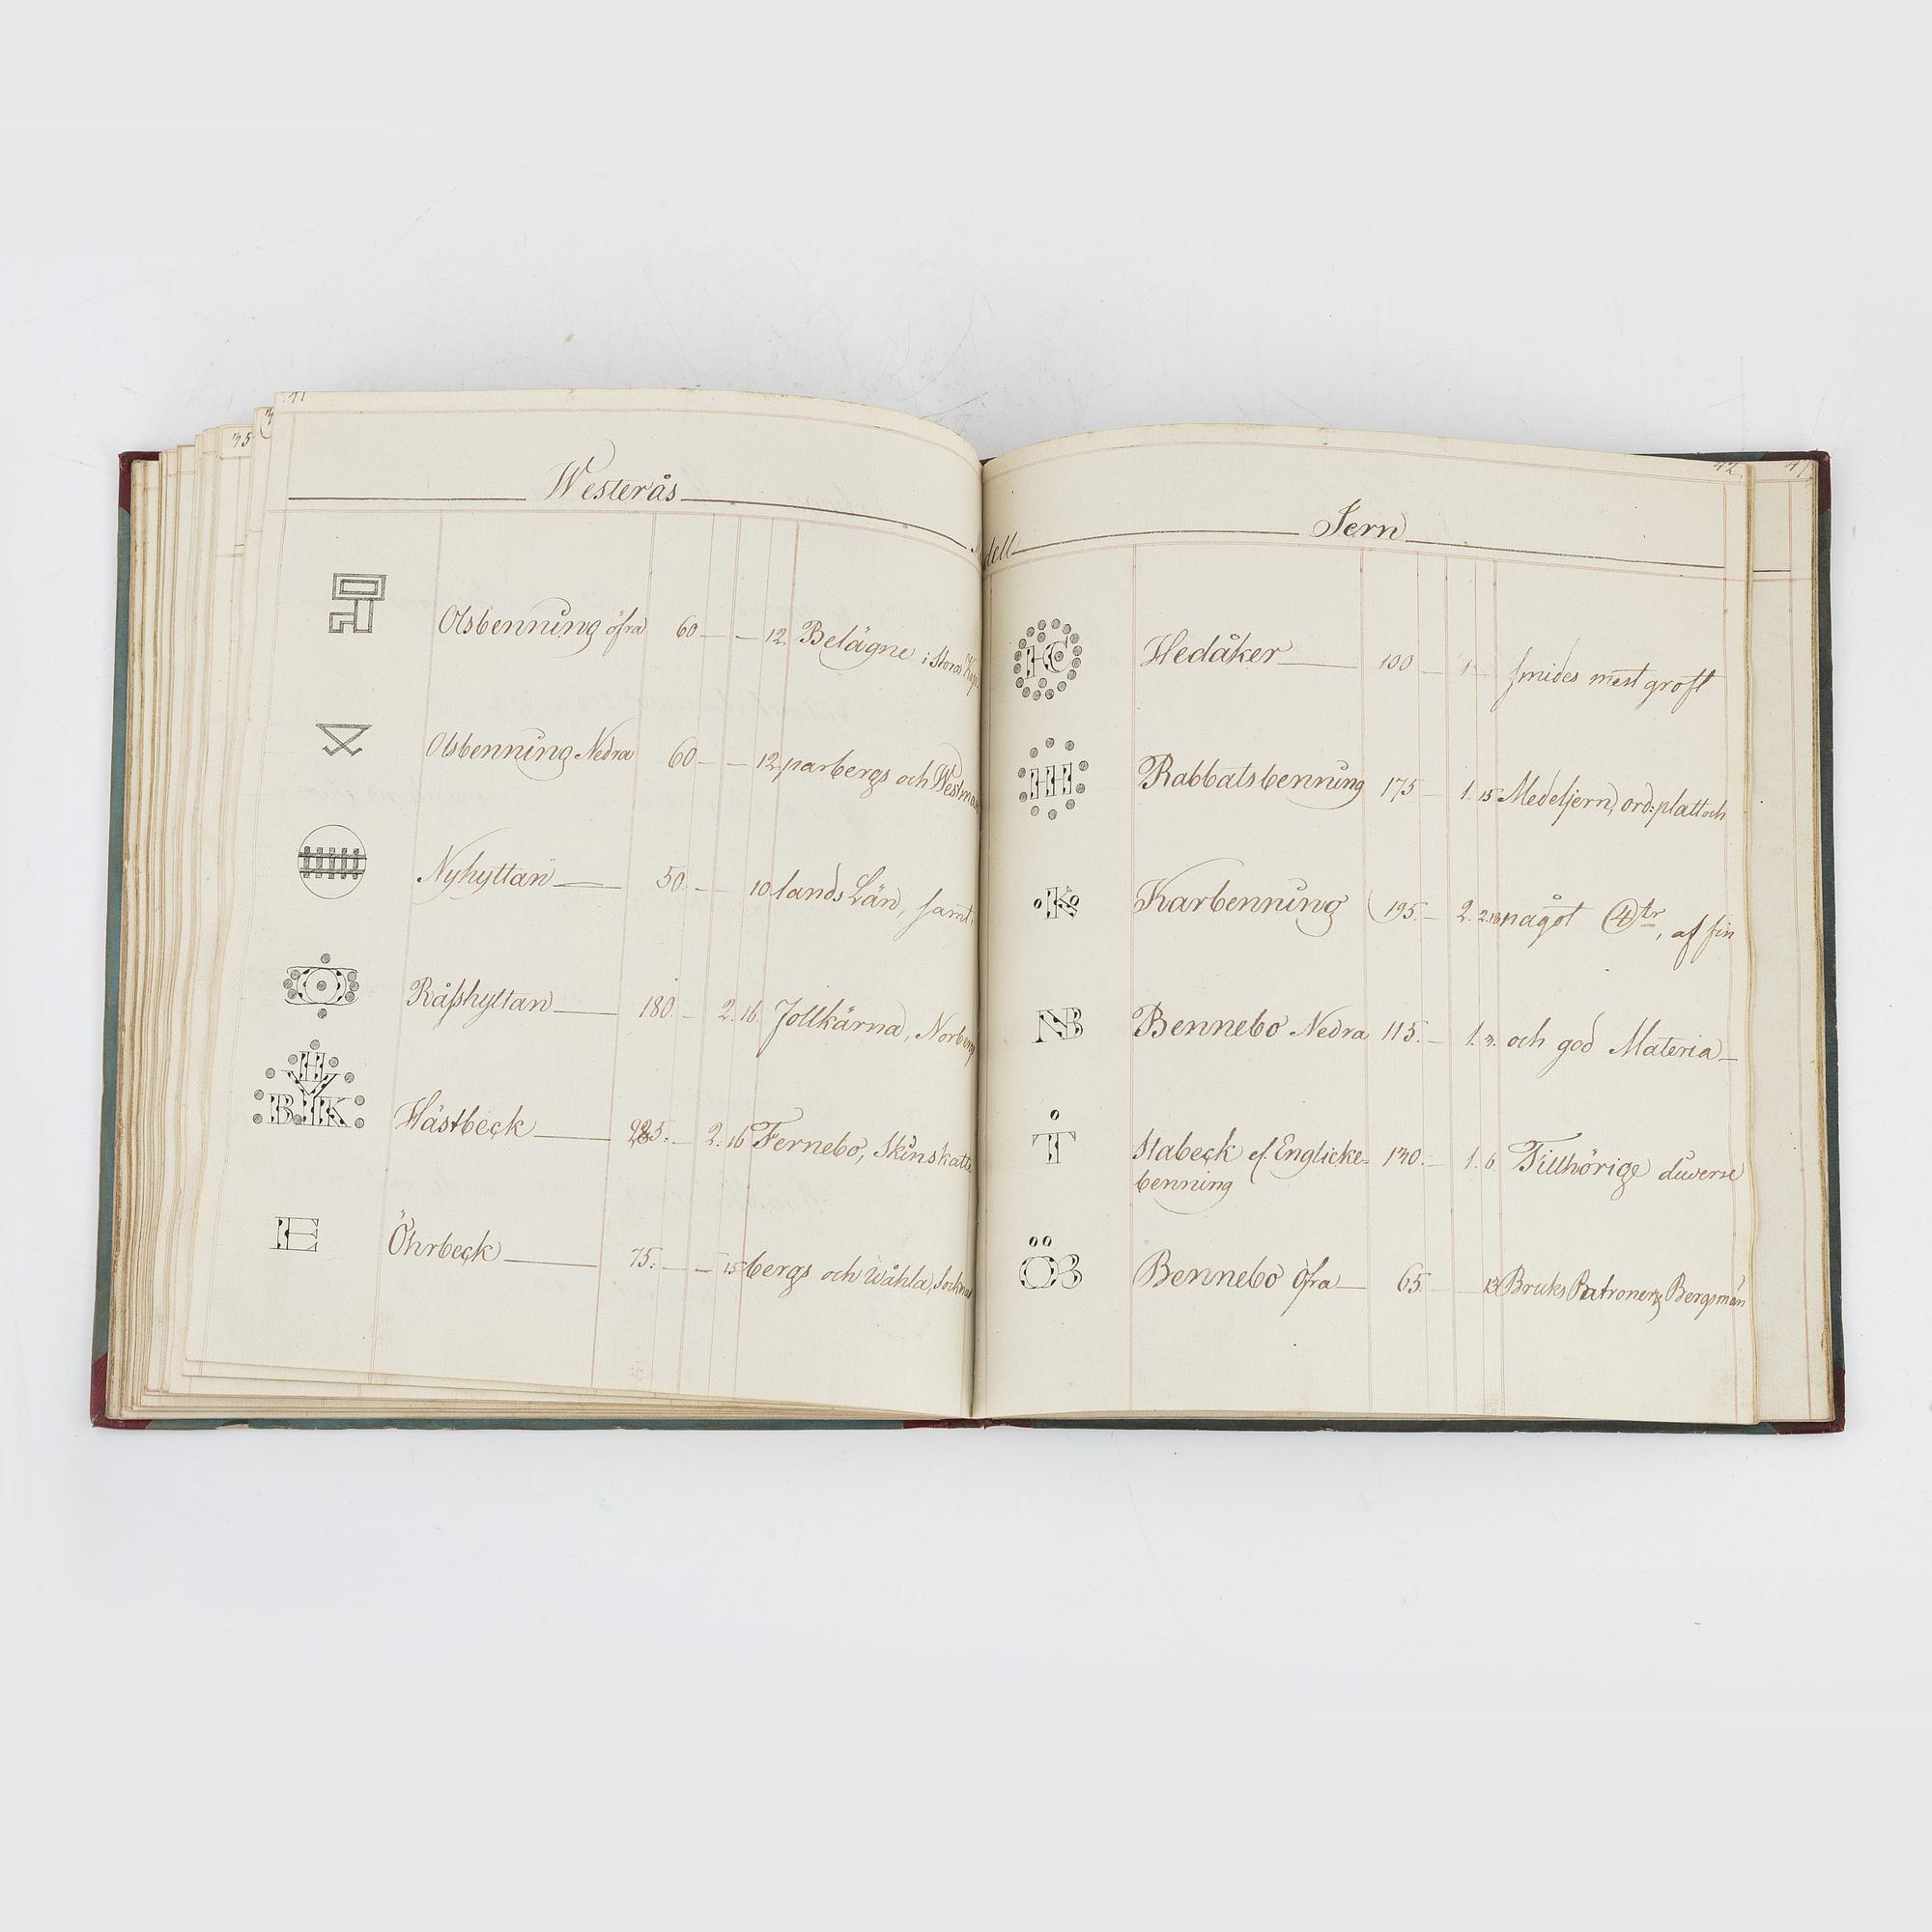 41
35
Westerås
Olsbenning öfra 60 — — 12. Belägne i Stora
Olsbenning Nedra 60 — — 12 parbergs och Westman
Nyhyttan — 50. — — 10 lands Län, samt
Råsshyttan — 180. — 2. 16. Norberg
H
BYK
Hästbeck — — 2. 16 Fernebo, Skinskatte
E
Öhrbeck — 75. — — 15 bergs och Wåhla, Sockna
42
47
dell
Jern
HC
Hedåker — 100 — 1 — smides mest groft
HH
Rabbatsbenning 175 — 1. 15 Medeljern, ord: platt och
K
Karbenning 195. — 2. något 4 tr, af fin
NB
Bennebo Nedra 115. — 1. 3. och god Materia
T
Stabeck el. Englicke- 130. — 1. 6 Tillhörige diverse
benning
ÖB
Bennebo Öfra — 65. — — 13 Bruks Patroner, Bergsmän